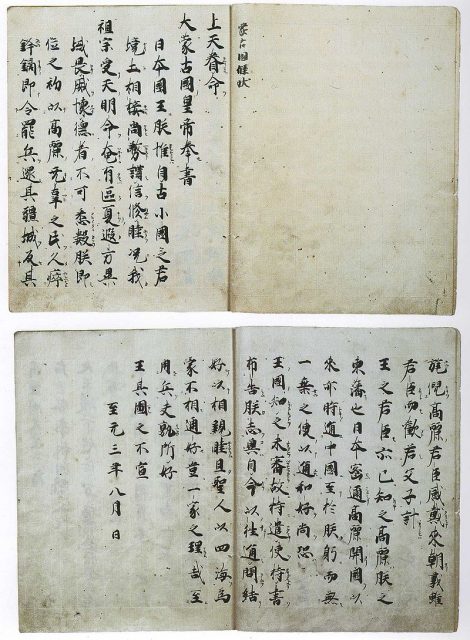 蒙古国牒状
上天眷命
大蒙古國皇帝奉書
日本國王朕惟自古小國之君
境土相接尚務講信修睦况我
祖宗受天明命奄有區夏遐方異
域畏威懷德者不可悉數朕即
位之初以高麗无辜之民久瘁
鋒鏑即令罷兵還其疆域反其
旄倪高麗君臣感戴來朝義雖
君臣而歡若父子計
王之君臣亦已知之高麗朕之
東藩也日本密邇高麗開國以
來亦時通中國至於朕躬而無
一乗之使以通和好尚恐
王國知之未審故特遣使持書
布告朕志冀自今以徃通問結
好以相親睦且聖人以四海爲
家不相通好豈一家之理哉至
用兵夫孰所好
王其圖之不宣
至元三年八月 日